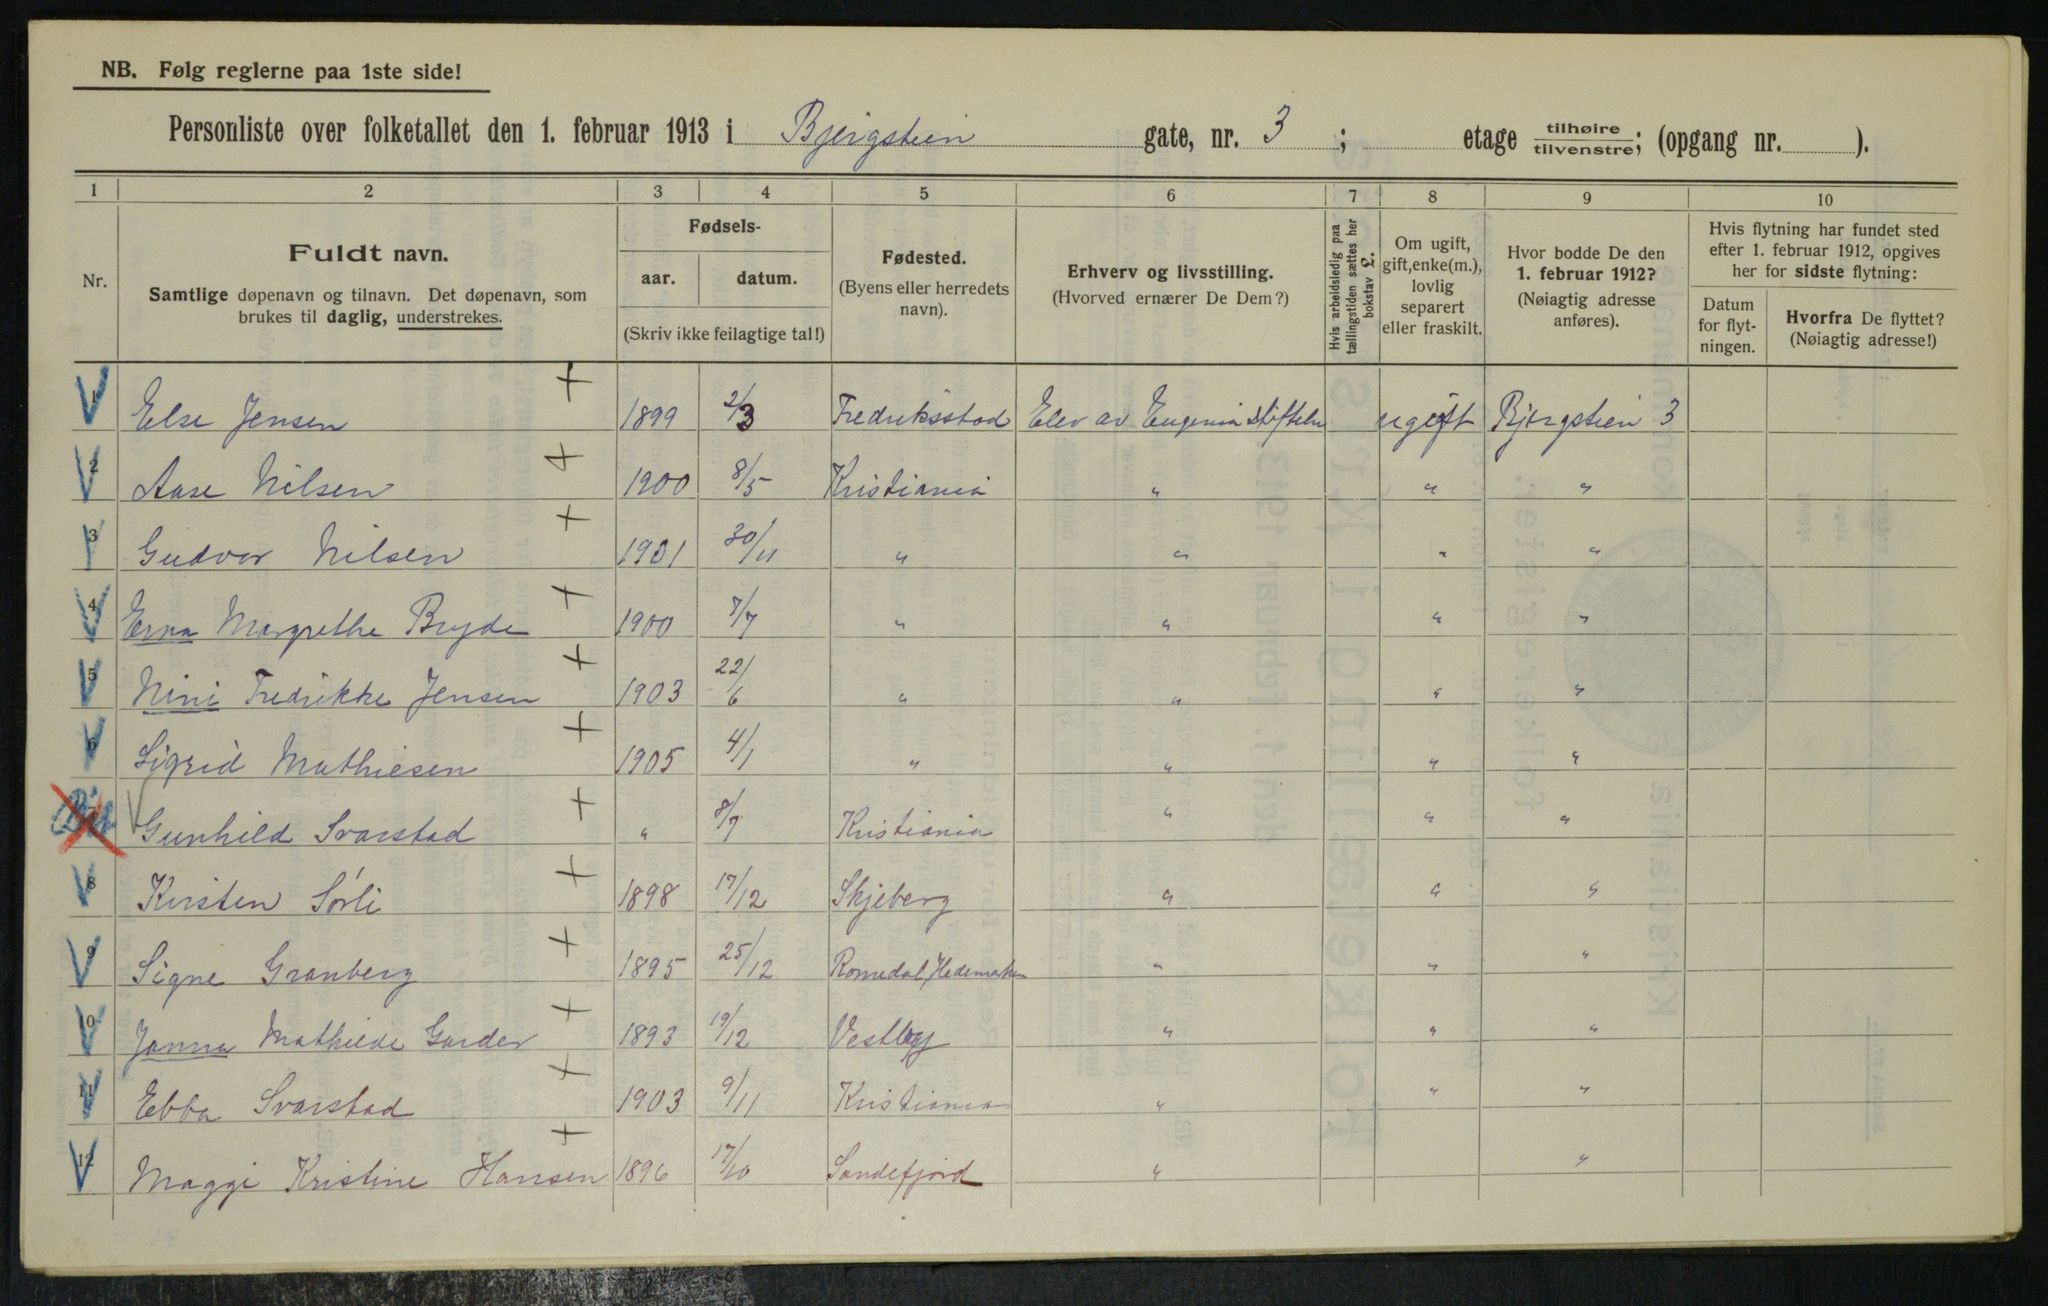 NB. Følg reglerne paa 1ste side!
Personliste over folketallet den 1. februar 1913 i Bjergstien gate, nr. 3 ; etage tilhøire / tilvenstre; (opgang nr. ).
1 2 3 4 5 6 7 8 9 10
Nr.
Fuldt navn.
Samtlige døpenavn og tilnavn. Det døpenavn, som
brukes til daglig, understrekes.
Fødsels-
aar. datum.
(Skriv ikke feilagtige tal!)
Fødested.
(Byens eller herredets
navn).
Erhverv og livsstilling.
(Hvorved ernærer De Dem?)
Hvis arbeidsledig paa
tællingstiden sættes her
bokstav £.
Om ugift,
gift, enke(m.),
lovlig
separert
eller fraskilt.
Hvor bodde De den
1. februar 1912?
(Nøiagtig adresse
anføres).
Hvis flytning har fundet sted
efter 1. februar 1912, opgives
her for sidste flytning:
Datum
for flyt-
ningen.
Hvorfra De flyttet?
(Nøiagtig adresse!)
1 Else Jensen + 1899 2/3 Fredriksstad Elev av Eugenia stiftelse ugift Bjergstien 3
2 Aase Nilsen + 1900 8/5 Kristiania " " "
3 Gudvor Nilsen + 1901 30/11 " " " "
4 Erna Margrethe Bryde + 1900 7/7 " " " "
5 Nini Fredrikke Jensen + 1903 22/6 " " " "
6 Sigrid Mathiesen + 1905 4/1 " " " "
7 Gunhild Svarstad + " 8/7 Kristiania " " "
8 Kirsten Sørli + 1898 17/12 Skjeberg " " "
9 Signe Granberg + 1895 25/12 Romedal, Hedemarken " " "
10 Janna Mathilde Garder + 1893 19/12 Vestby " " "
11 Ebba Svarstad + 1903 9/11 Kristiania " " "
12 Maggi Kristine Hansen + 1896 17/10 Sandefjord " "